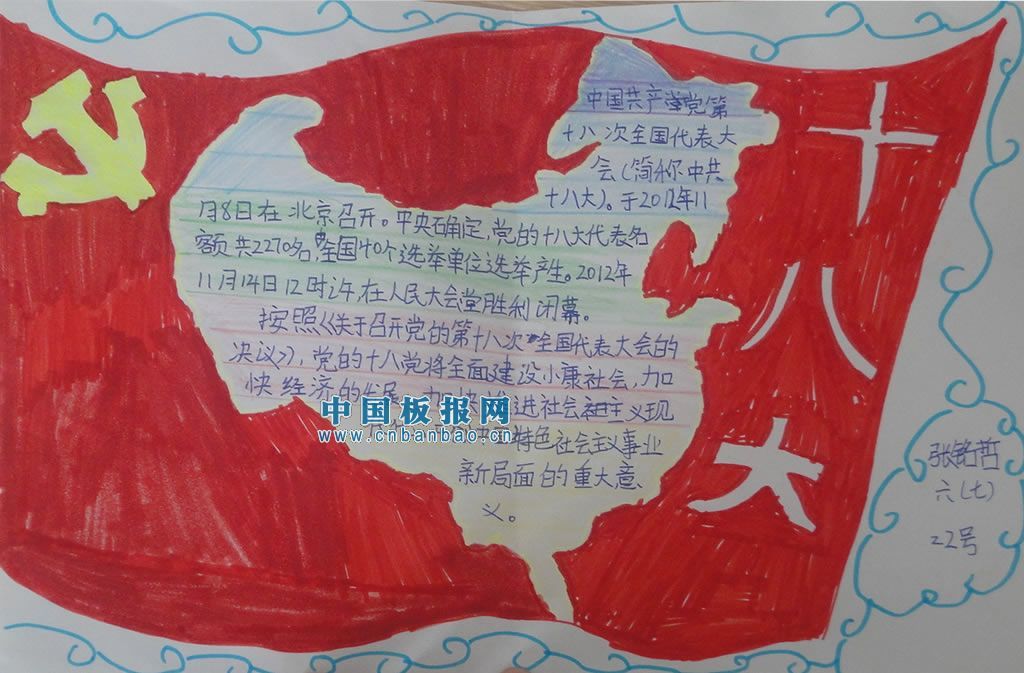 中国共产党第
十八次全国代表大
会(简称中共
十八大)。于2012年11
月8日在北京召开。中央确定,党的十八大代表名
额共2270名,由全国40个选举单位选举产生。2012年
11月14日12时许,在人民大会堂胜利闭幕。
按照《关于召开党的第十八次全国代表大会的
决议》,党的十八党将全面建设小康社会,加
快经济的发展
进社会主义现
特色社会主义事业
新局面的重大意
义。
十八大
中国板报网
www.cnbanbao.cn
张铭哲
六(七)
22号